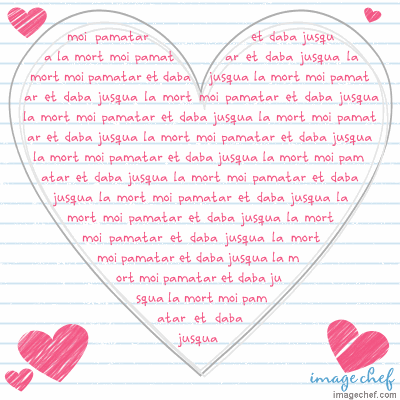 moi pamatar et daba jusqu
a la mort moi pamat ar et daba jusqua la
mort moi pamatar et daba jusqua la mort moi pamat
ar et daba jusqua la mort moi pamatar et daba jusqua
la mort moi pamatar et daba jusqua la mort moi pamat
ar et daba jusqua la mort moi pamatar et daba jusqua
la mort moi pamatar et daba jusqua la mort moi pam
atar et daba jusqua la mort moi pamatar et daba
jusqua la mort moi pamatar et daba jusqua la
mort moi pamatar et daba jusqua la mort
moi pamatar et daba jusqua la mort
moi pamatar et daba jusqua la m
ort moi pamatar et daba ju
squa la mort moi pam
atar et daba
jusqua
imagechef
imagechef.com